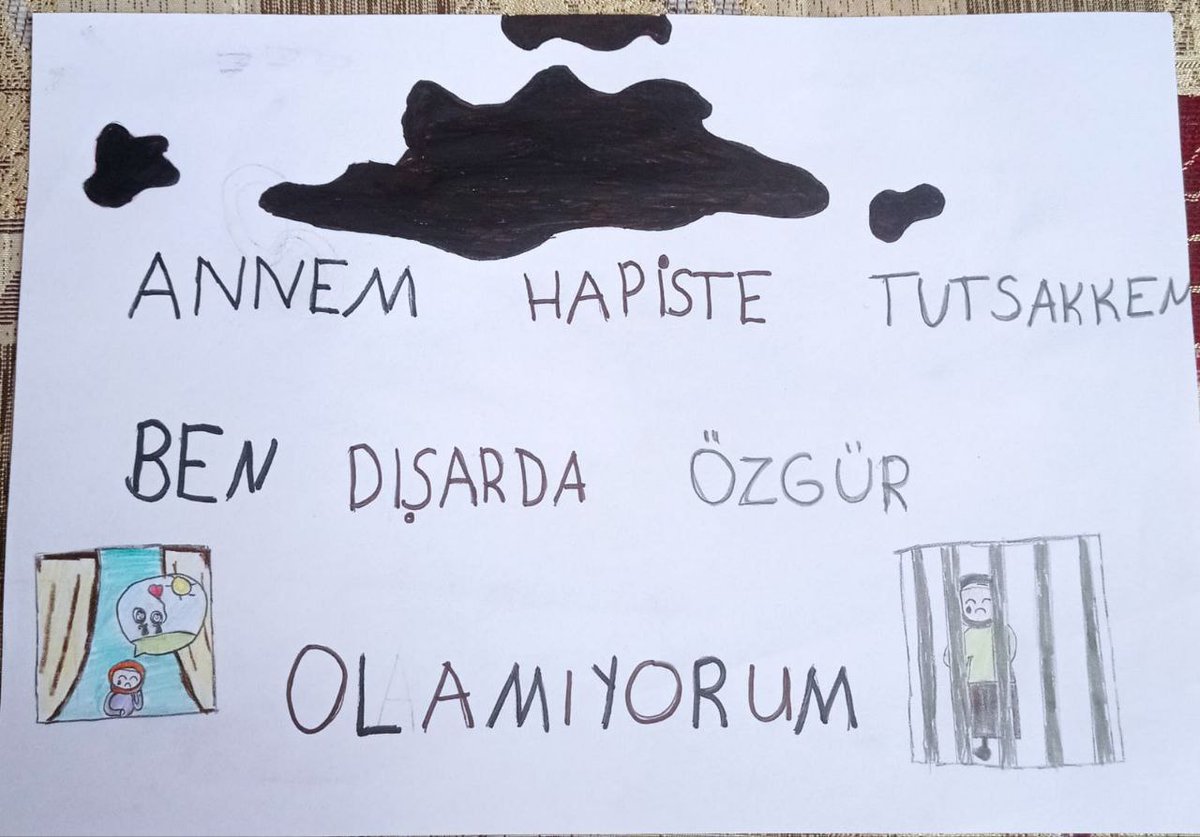 ANNEM HAPİSTE TUTSAKKEN
BEN DIŞARDA ÖZGÜR
OLAMIYORUM